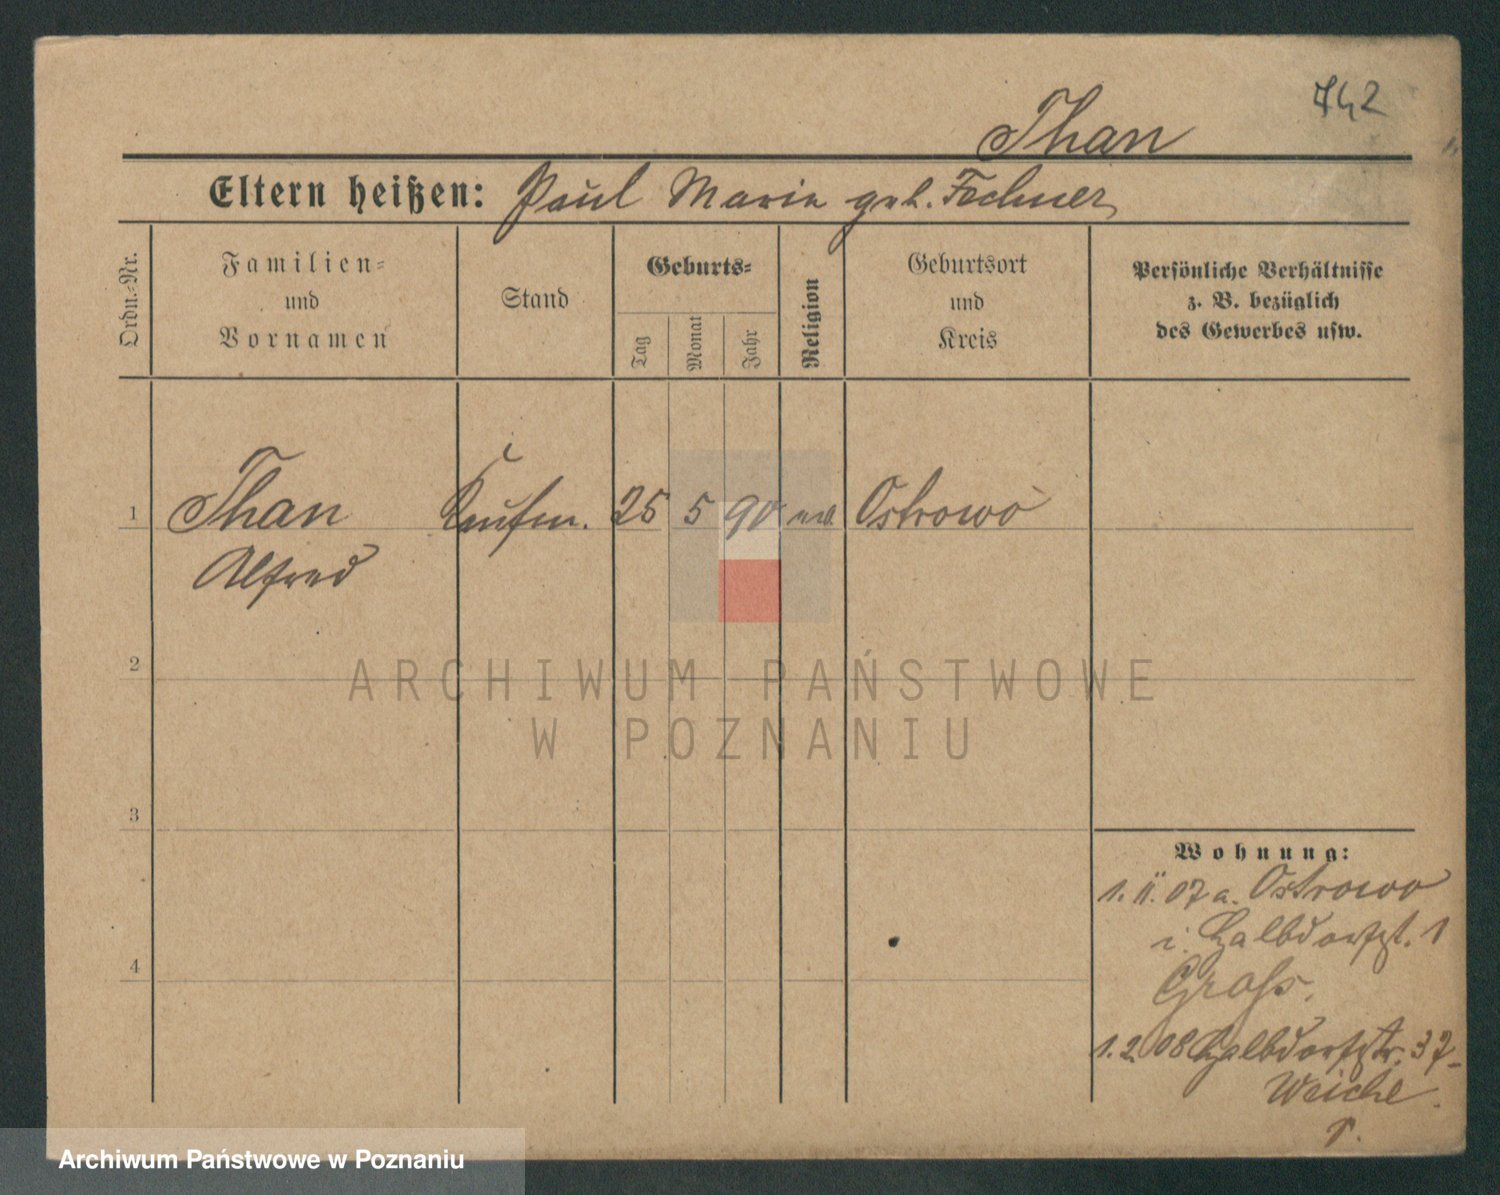 742
Than
Eltern heißen: Paul Marie geb. Fechner
Ordn.-Nr.
Familien-
und
Vornamen
Stand
Geburts-
Tag
Monat
Jahr
Religion
Geburtsort
und
Kreis
Persönliche Verhältnisse
z. B. bezüglich
des Gewerbes usw.
1 Than Kaufm. 25 5 90 ev. Ostrowo
Alfred
2
ARCHIWUM PAŃSTWOWE
W POZNANIU
3
Wohnung:
1. II. 07 a. Ostrowo
i. Halbdorfst. 1
Grass.
4
1. 2. 08 Halbdorfstr. 37
Weiche.
Archiwum Państwowe w Poznaniu